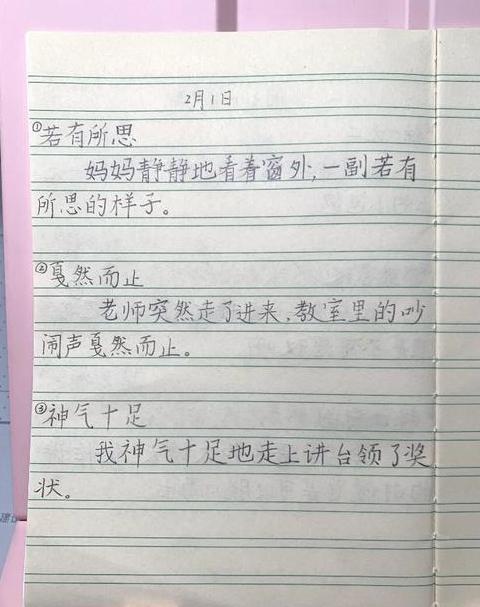 2月1日
①若有所思
妈妈静静地看着窗外,一副若有
所思的样子。
②戛然而止
老师突然走了进来,教室里的吵
闹声戛然而止。
③神气十足
我神气十足地走上讲台领了奖
状。